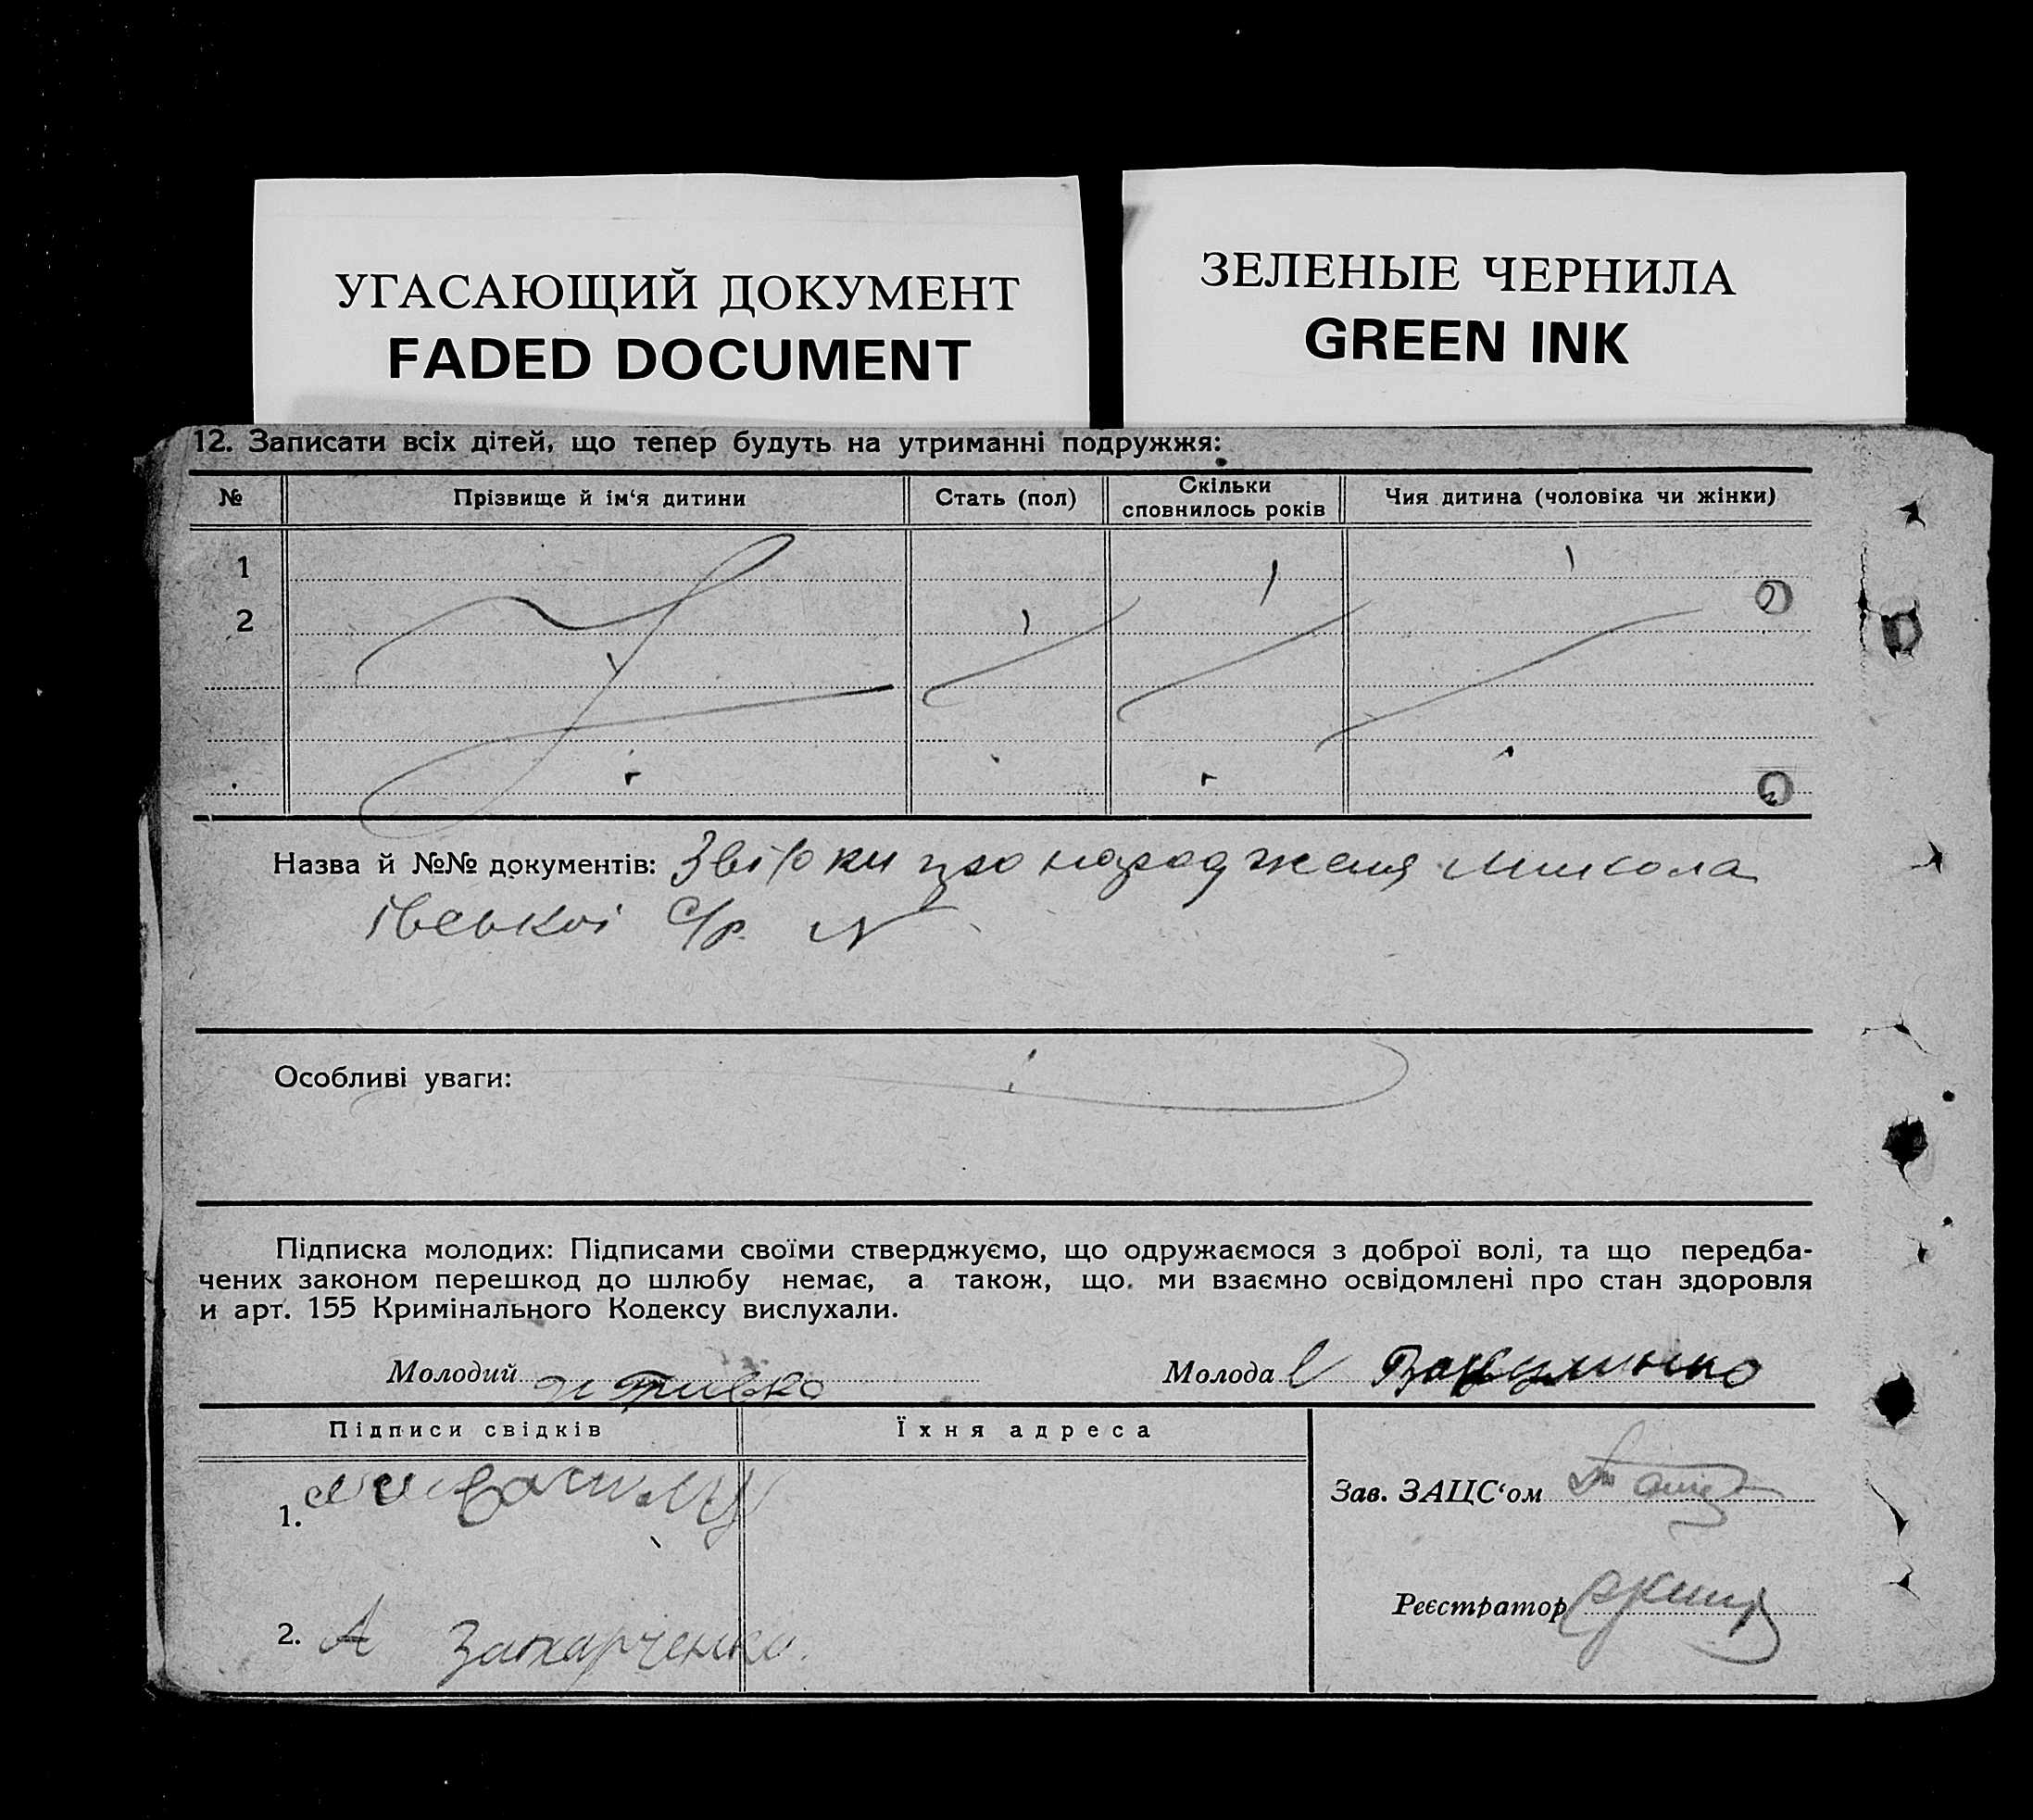 УГАСАЮЩИЙ ДОКУМЕНТ
FADED DOCUMENT
ЗЕЛЕНЫЕ ЧЕРНИЛА
GREEN INK
12. Записати всіх дітей, що тепер будуть на утриманні подружжя:
№ Прізвище й ім‘я дитини Стать (пол) Скільки сповнилось років Чия дитина (чоловіка чи жінки)
1
2
Назва й №№ документів: про
ївської с/р. N
Особливі уваги:
Підписка молодих: Підписами своїми стверджуємо, що одружаємося з доброї волі, та що передба-
чених законом перешкод до шлюбу немає, а також, що ми взаємно освідомлені про стан здоровля
и арт. 155 Кримінального Кодексу вислухали.
Молодий Молода
Підписи свідків Їхня адреса
1.
Зав. ЗАЦС‘ом
Реєстратор
2. А Захарченко.